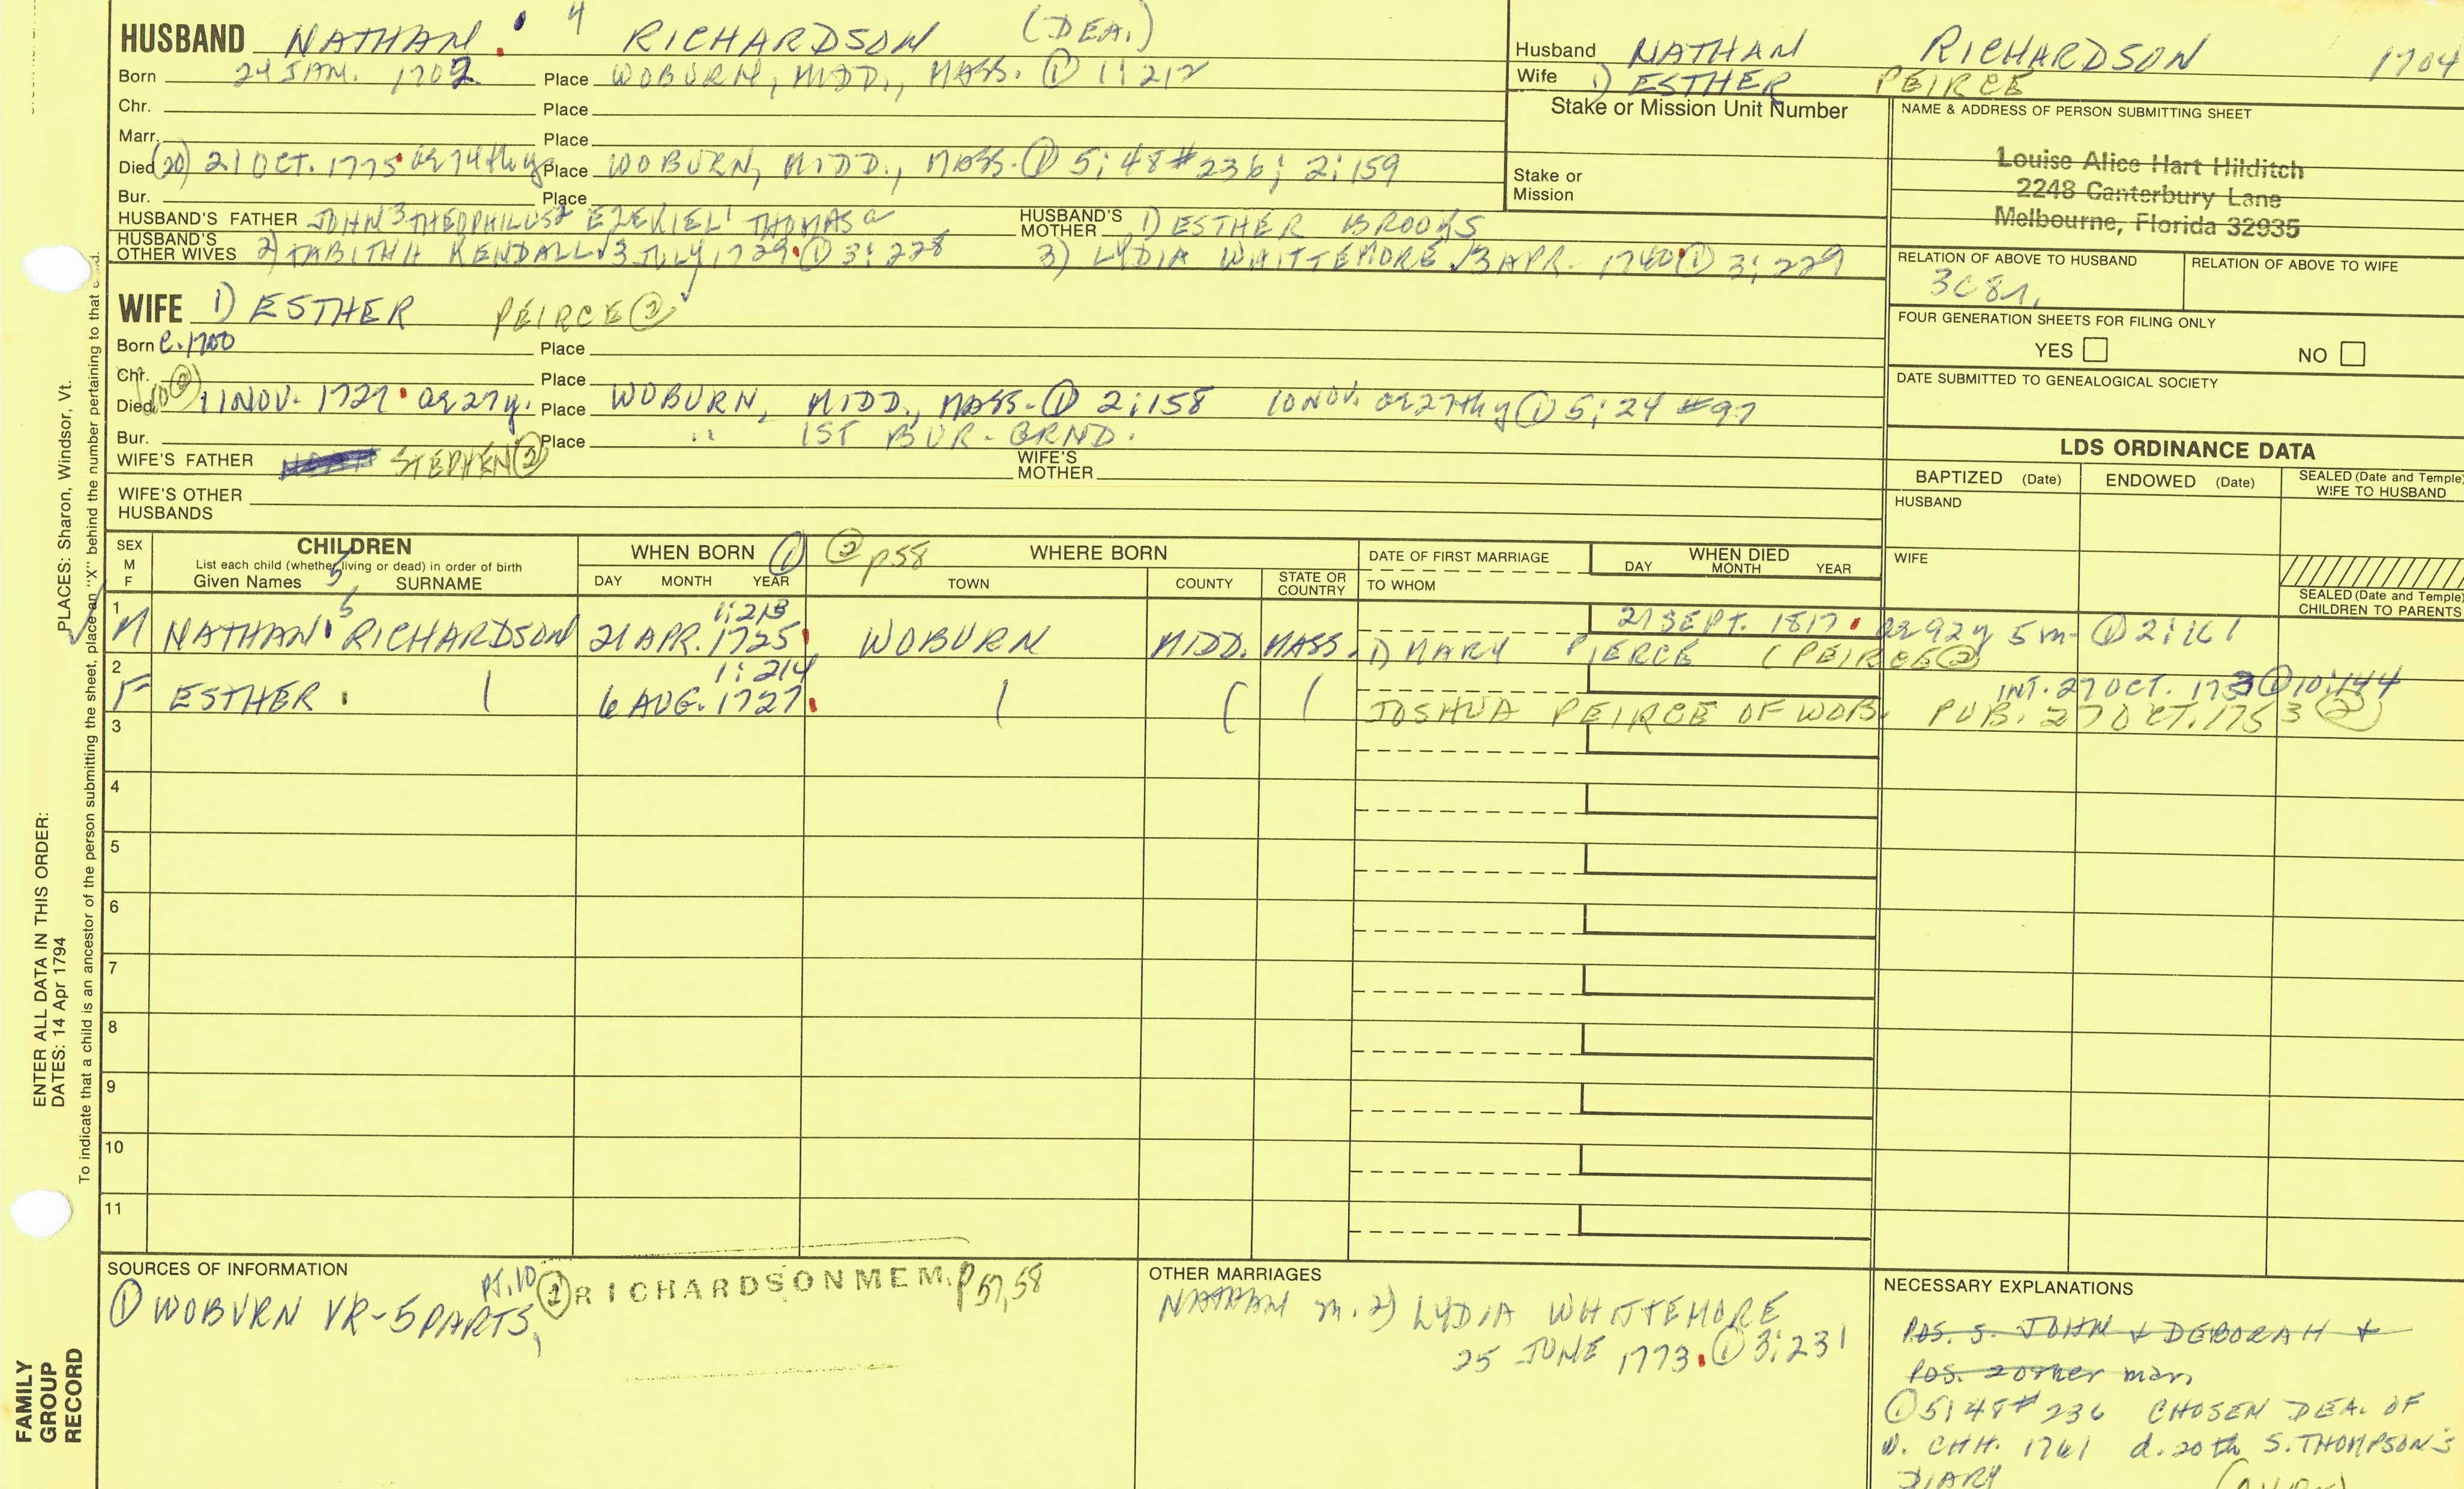 HUSBAND NATHAN 4 RICHARDSON (DEA.)
Born 24 JAN. 1702 Place WOBURN, MIDD., MASS. ① 1:212
Chr. Place
Marr. Place
Died (20) 21 OCT. 1775 ae 74th y Place WOBURN, MIDD., MASS. ① 5:48 #236; 2:159
Bur. Place
HUSBAND'S FATHER JOHN 3 THEOPHILUS 2 EZEKIEL 1 THOMAS a HUSBAND'S MOTHER 1) ESTHER BROOKS
HUSBAND'S OTHER WIVES 2) TABITHA KENDALL √3 JULY 1729 ① 3:228 3) LYDIA WHITTEMORE √3 APR. 1740 ① 3:229
WIFE 1) ESTHER PEIRCE ②
Born C. 1700 Place
Chr. Place
Died (10②) 11 NOV. 1727 ae 27y. Place WOBURN, MIDD., MASS. ① 2:158 10 NOV. ae 27th y ① 5:24 #97
Bur. Place " 1ST BUR. GRND.
WIFE'S FATHER STEPHEN ② WIFE'S MOTHER
WIFE'S OTHER HUSBANDS
Husband NATHAN RICHARDSON 1704
Wife 1) ESTHER PEIRCE
Stake or Mission Unit Number
Stake or Mission
NAME & ADDRESS OF PERSON SUBMITTING SHEET
Louise Alice Hart Hilditch
2248 Canterbury Lane
Melbourne, Florida 32935
RELATION OF ABOVE TO HUSBAND RELATION OF ABOVE TO WIFE
3C8R.
FOUR GENERATION SHEETS FOR FILING ONLY
YES NO
DATE SUBMITTED TO GENEALOGICAL SOCIETY
LDS ORDINANCE DATA
BAPTIZED (Date) ENDOWED (Date) SEALED (Date and Temple) WIFE TO HUSBAND
HUSBAND
WIFE
SEALED (Date and Temple) CHILDREN TO PARENTS
SEX M F CHILDREN WHEN BORN ① ② p58 WHERE BORN DATE OF FIRST MARRIAGE WHEN DIED
List each child (whether living or dead) in order of birth
Given Names 5 SURNAME DAY MONTH YEAR TOWN COUNTY STATE OR COUNTRY TO WHOM DAY MONTH YEAR
1 5 1:213 21 SEPT. 1817 ae 92y 5m ① 2:161
M NATHAN RICHARDSON 21 APR. 1725 WOBURN MIDD. MASS. 1) MARY PIERCE (PEIRCE ②
2 1:214 INT. 27 OCT. 1753 ① 10:144
F ESTHER 6 AUG. 1727 JOSHUA PEIRCE OF WOB. PUB. 27 OCT. 1753 ②
3
4
5
6
7
8
9
10
11
SOURCES OF INFORMATION
① WOBURN VR-5 PARTS, PT. 10 ② RICHARDSON MEM. P 57, 58
OTHER MARRIAGES
NATHAN m. 2) LYDIA WHITTEMORE
25 JUNE 1773. ① 3:231
NECESSARY EXPLANATIONS
POS. S. JOHN & DEBORAH &
POS. 2 other marr
① 5:48 #236 CHOSEN DEA. OF
W. CHH. 1761 d. 20th S. THOMPSON'S
DIARY
PLACES: Sharon, Windsor, Vt.
ENTER ALL DATA IN THIS ORDER:
DATES: 14 Apr 1794
To indicate that a child is an ancestor of the person submitting the sheet, place an "X" behind the number pertaining to that
FAMILY
GROUP
RECORD